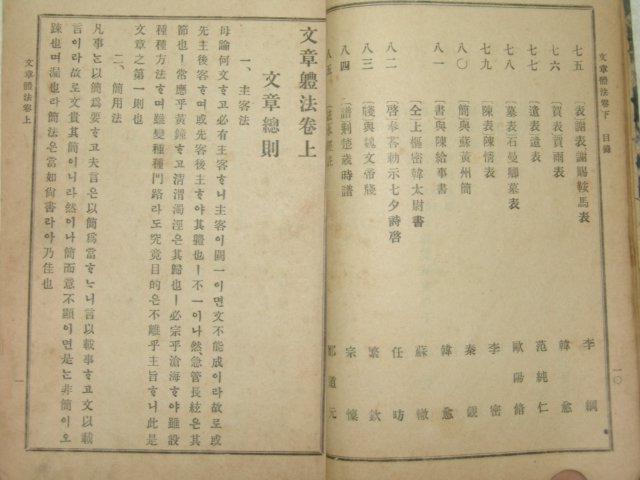 文章體法卷下 目錄
七五 〔表〕謝賜鞍馬表 李綱
七六 〔賀表〕賀雨表 韓愈
七七 〔遺表〕遺表 范純仁
七八 〔墓表〕石曼卿墓表 歐陽脩
七九 〔陳表〕陳情表 李密
八〇 〔簡〕與蘇黃州簡 秦觀
八一 〔書〕與陳給事書 韓愈
〔仝上〕樞密韓太尉書 蘇轍
八二 〔啓〕奉答勅示七夕詩啓 任昉
八三 〔牋〕與魏文帝牋 繁欽
八四 〔譜〕楚歲時譜 宗懍
八五
一〇
文章體法卷上
文章總則
一、主客法
毋論何文ᄒᆞ고必有主客ᄒᆞ니主客이闕一이면文不能成이라故로或
先主後客ᄒᆞ며或先客後主ᄒᆞ야其體也ㅣ不一이나然、急管長絃은其
節也ㅣ常應乎黃鐘ᄒᆞ고淸渭濁涇은其歸也ㅣ必宗乎滄海ᄒᆞ야雖設
種種方法ᄒᆞ며雖變種種門路라도究竟目的은不離乎主旨ᄒᆞ니此是
文章之第一則也
二、簡用法
凡事ᄂᆞᆫ以簡爲要ᄒᆞ고夫言은以簡爲當ᄒᆞᄂᆞ니言以載事ᄒᆞ고文以載
言이라故로文貴其簡이니라然이나簡而意不顯이면是ᄂᆞᆫ非簡이오
踈也며漏也라簡法은當如尙書라야乃佳也
文章體法卷上
一